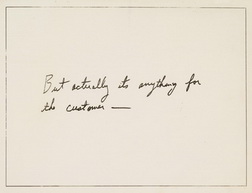 But actually its anything for
the customer —